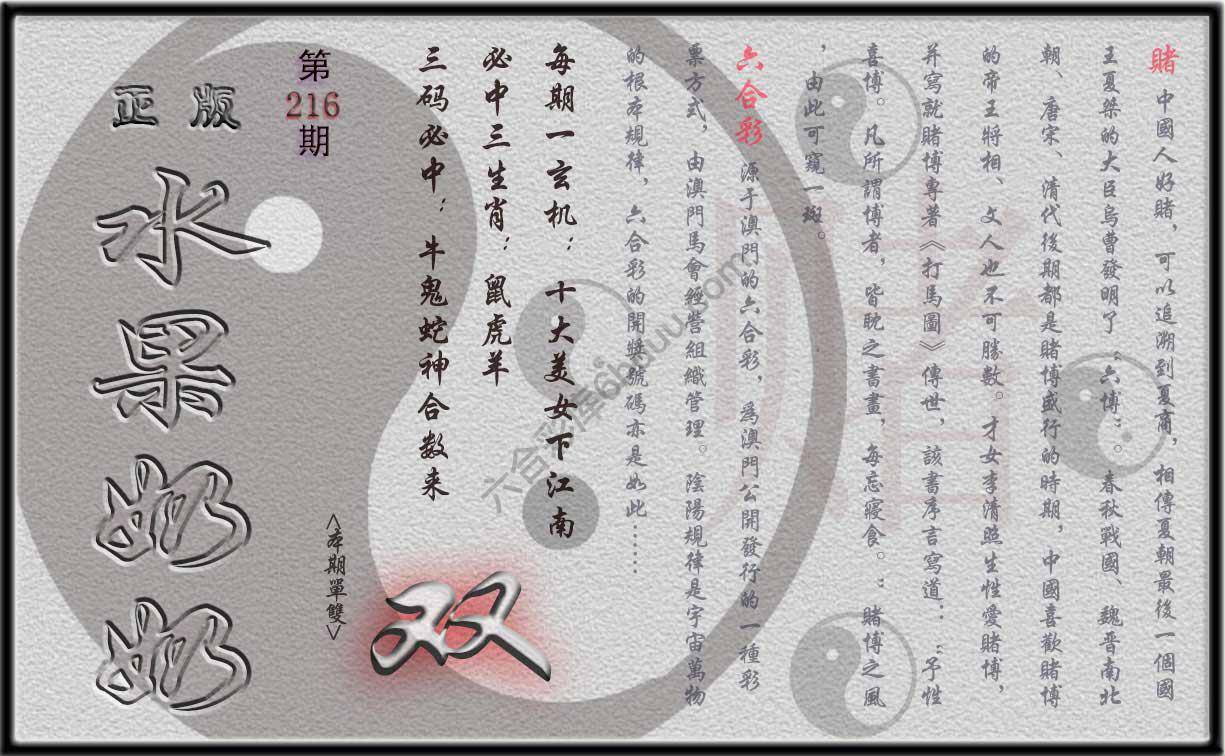 賭 中國人好賭，可以追溯到夏商，相傳夏朝最後一個國
王夏桀的大臣烏曹發明了“六博”。春秋戰國、魏晋南北
朝、唐宋、清代後期都是賭博盛行的時期，中國喜歡賭博
的帝王將相、文人也不可勝數。才女李清照生性愛賭博，
并寫就賭博專著《打馬圖》傳世，該書序言寫道：“予性
喜博。凡所謂博者，皆眈之書畫，每忘寢食。”賭博之風
，由此可窺一斑。
六合彩 源于澳門的六合彩，為澳門公開發行的一種彩
票方式，由澳門馬會經營組織管理。陰陽規律是宇宙萬物
的根本規律，六合彩的開獎號碼亦是如此……
每期一玄机：十大美女下江南
必中三生肖：鼠虎羊
三码必中：牛鬼蛇神合数来
<本期單雙>
双
第
216
期
正版
水果奶奶
賭
六合彩库6hduu.com